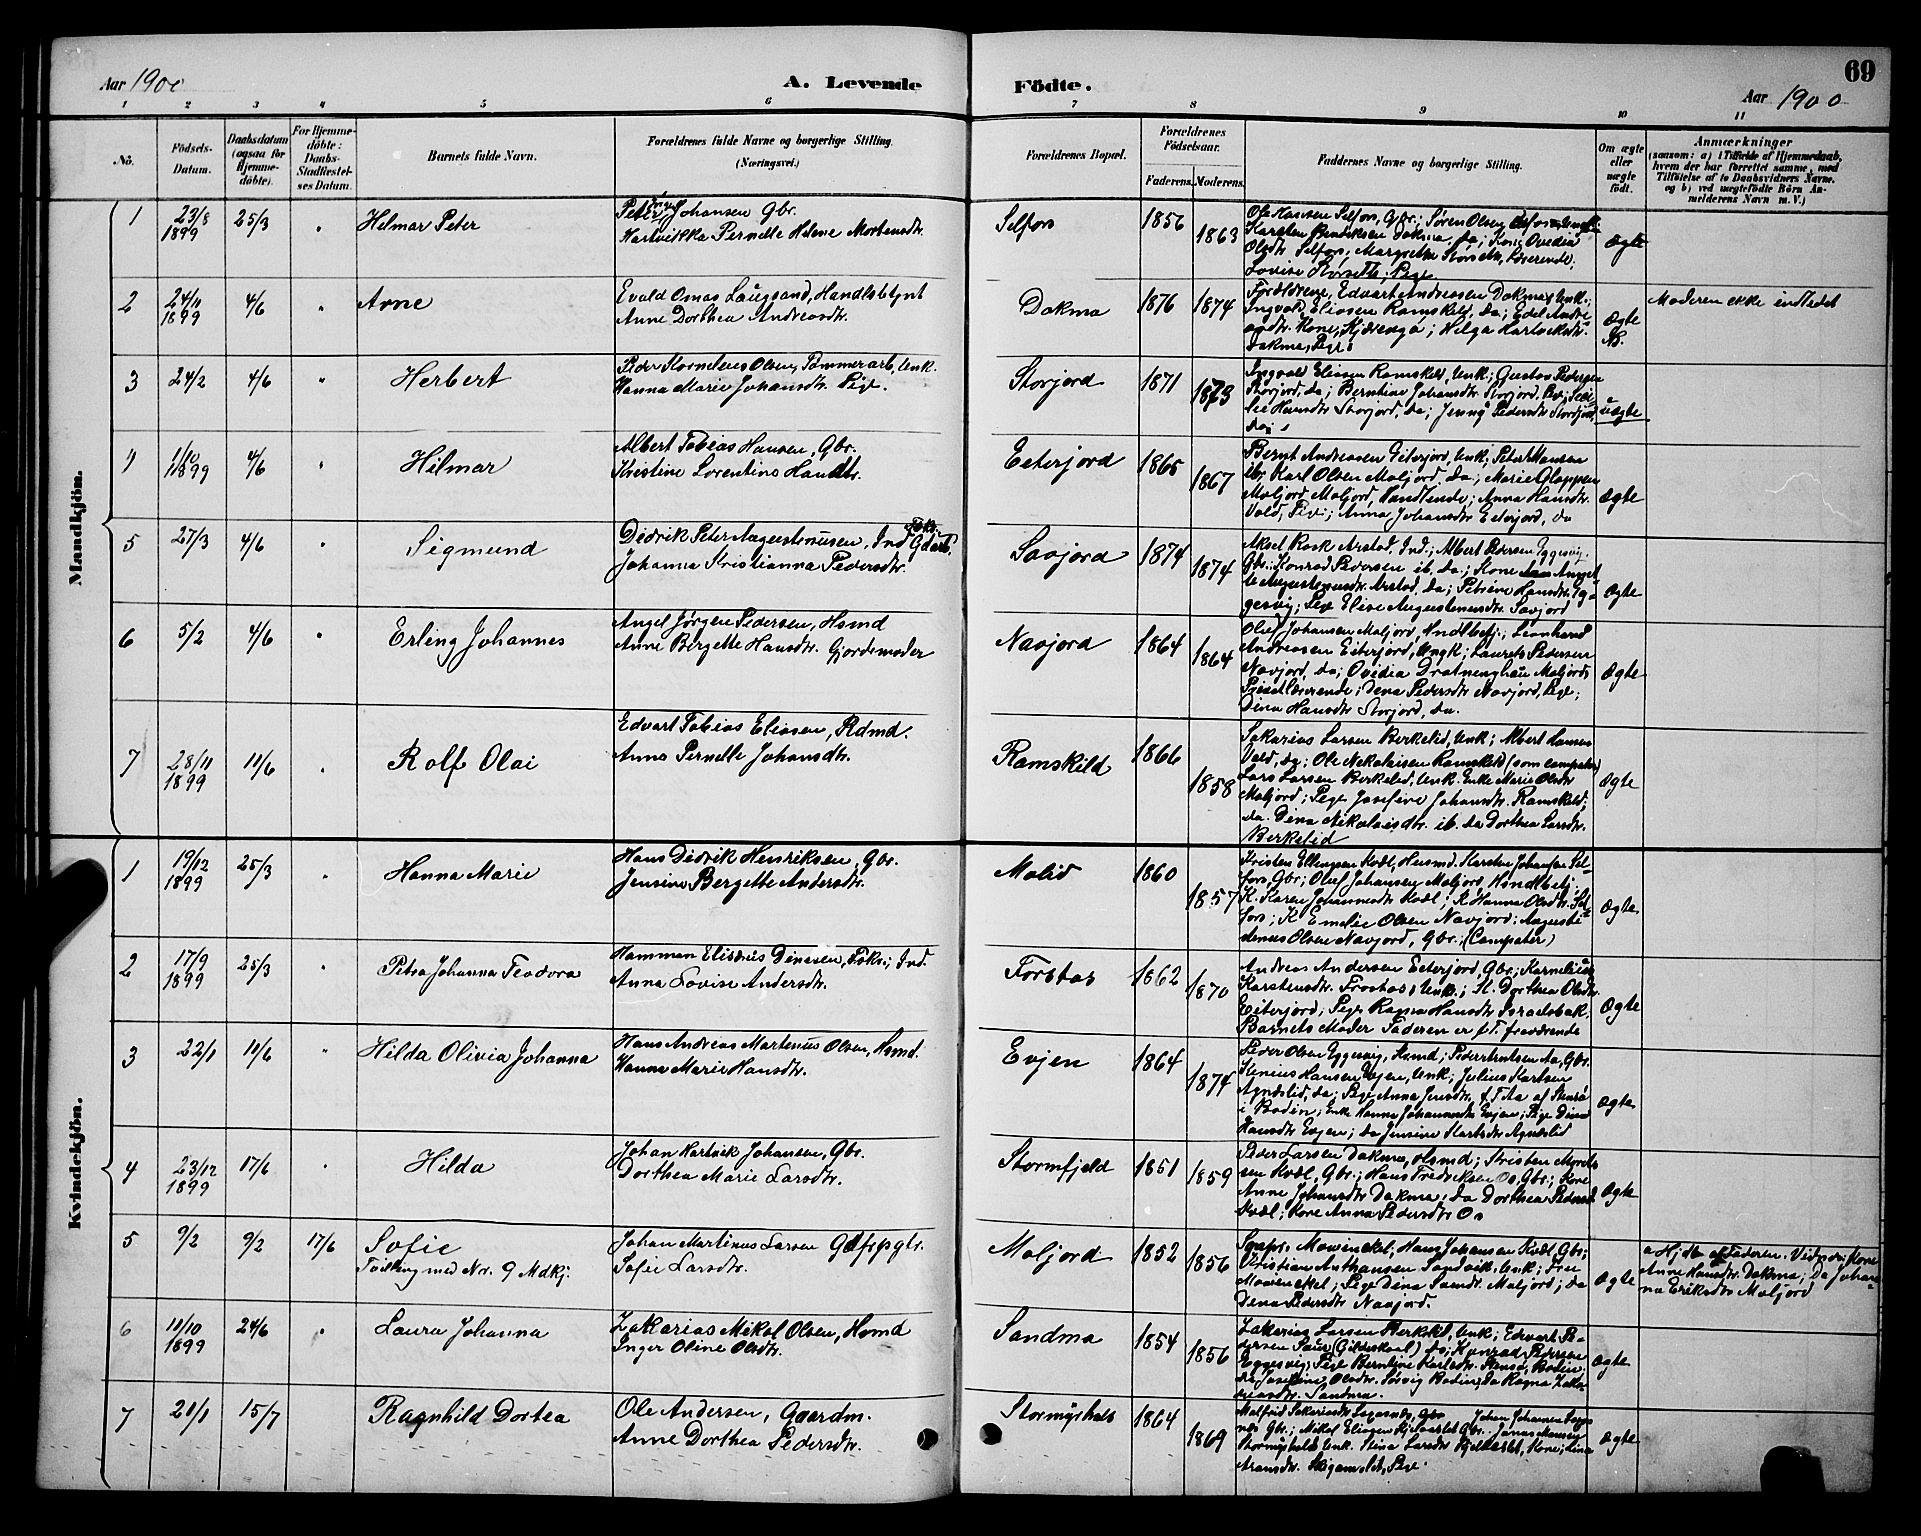 69
Aar 1900 A. Levende Födte. Aar 1900
1 2 3 4 5 6 7 8 9 10 11
No. Födsels-Datum. Daabsdatum (ogsaa for Hjemme-döbte). For Hjemme-döbte: Daabs-Stadfæstelses Datum. Barnets fulde Navn. Forældrenes fulde Navne og borgerlige Stilling. (Næringsvei.) Forældrenes Bopæl. Forældrenes Födselsaar. Faderens. Moderens. Faddernes Navne og borgerlige Stilling. Om ægte eller uægte födt. Anmærkninger (saasom: a) i Tilfælde af Hjemmedaab, hvem der har forrettet samme, med Tilföielse af to Daabsvidners Navne, og b) ved uægtefödte Börn Anmelderens Navn m. V.)
Mandkjön.
1 23/8 1899 25/3 " Hilmar Peter
Peter Johansen Gbr.
Hartvikka Pernelle Helene Mortensdtr.
Selfors 1856 1863
Ole Hansen Selfors, Gbr.; Søren Olsen
Karsten Bendiksen Dokmo, da; Kone Ovedia
Olsdtr. Selfors, Margrethe Storseth, Lærerinde,
Lovise Storseth, Pige
Ægte
2 24/11 1899 4/6 " Arne
Evald Omas Laugsand, Handlsbtjnt
Anne Dorthea Andreasdtr.
Dokmo 1876 1874
Forældrene, Edvart Andreassen Dokmo, Unk.;
Ingvald Eliasen Ramskild, da; Edel Andre
asdtr. Kone, ; Helga Hartviksdtr.
Dokmo, Pige
Ægte
N.
Moderen ikke indledet
3 24/2 4/6 " Herbert
Peder Kornelius Olsen, Tømmerarb, Unk.
Hanna Marie Johansdtr. Pige.
Storjord 1871 1873
Ingvald Eliasen Ramskild, Unk.; Gustav Pedersen
Storjord, da; Berntine Johansdtr. Storjord, Pige;
Hansdtr Storjord, da; Jenny Pedersdtr Storjord,
da
uægte
4 1/10 1899 4/6 " Hilmar
Albert Tobias Hansen, Gbr.
Kristine Lorentine Hansdtr.
Eeterjord 1865 1867
Bernt Andreassen Eiterjord, Unk; Peter Hansen
ib; Karl Olsen Moljord, da; Marie Gloppen
Moljord, Handlende; Anna Hansdtr.
Vold, Pige; Anna Johansdtr Eeterjord, da
Ægte
5 27/3 4/6 " Sigmund
Didrik Peter Augustinusen, Ind. Gdarb.
Johanna Kristianna Pedersdtr.
Savjord 1874 1874
Aksel Rosk Arstad, Ind.; Albert Pedersen Eggesvig,
Gbr.; Konrad Pedersen ib. da; Kone
Augustenusdtr. Arstad, da; Petrine Hansdtr. Eg-
gesvig; Pige Elise Augustenusdtr. Savjord
Ægte
6 5/2 4/6 " Erling Johannes
Angel Jørgen Pedersen, Hsmd
Anne Bergette Hansdtr. Gjordemoder
Navjord 1864 1864
Oluf Johansen Moljord, Hndlbetj.; Leonhard
Andreasen Eiterjord, Ungk; Laurets Pedersen
Navjord, da; Ovidia Dratninghau Moljord,
Privatlærerinde; Dena Pedersdtr Navjord, Pige;
Dina Hansdtr Storjord, da.
Ægte
7 28/11 1899 10/6 " Rolf Olai
Edvart Tobias Eliasen, Rdmd.
Anne Pernelle Johansdtr.
Ramskild 1866 1858
Sakarias Larsen Berkelid, Unk; Albert Hansen
Vold, da; Ole Nikolaisen Ramskild (som compater)
Lars Larsen Berkelid, Unk. Enke Marie Olsdtr
Moljord; Pige Josefine Johansdtr. Ramskild;
da. Dina Nikolaisdtr. ib. da Dorthea Larsdtr.
Berkelid
Ægte
Kvindekjön.
1 19/12 1899 25/3 " Hanna Marie
Hans Didrik Henriksen, Gbr.
Jensine Bergette Andersdtr.
Molid 1860 1857
Kristen Ellingsen Kvæl, Husmd. Karsten Johansen Sel-
fors, Gbr; Oluf Johansen Moljord, Hndlbetj.
K. Karen Johannesdtr Kvæl; K. Hanna Olsdtr. Sel-
fors; K Emelie Olsen Navjord; Auguste-
denus Olsen Navjord, Gbr.; (Compater)
Ægte
2 17/9 1899 25/3 " Petra Johanna Teodora
Hamman Elisæus Dinesen, Fskr; Ind.
Anna Lovise Andersdtr.
Forstas 1862 1870
Andreas Andersen Eeterjord, Gbr; Kornelius
Karstensdtr. Frostas, Unk; K. Dorthea Olsdtr.
Eeterjord; Pige Ragna Hansdtr Israelsbak,
Barnets Moder Faderen er f. T. fraværende
Ægte
3 22/1 10/6 " Hilda Olivia Johanna
Hans Andreas Martinus Olsen, Hsmd.
Hanna Marie Hansdtr.
Evjen 1864 1874
Peder Olsen Eggesvig, Hsmd; Peder Arntsen Aa, Gbr.
Stenius Hansen Evjen, Unk; Julius Karlsen
Agnæslid, da; Pige Anna Jensdtr, f. T. Aa af
i Bodin; Enke Hanna Johannesdtr Evjen; Pige Dina
Hansdtr Evjen; da Jensine Karlsdtr Agnæslid
Ægte
4 23/12 1899 17/6 " Hilda
Johan Hartvik Johansen, Gbr.
Dorthea Marie Larsdtr.
Stormfjeld 1851 1859
Peder Larsen Dokmo, Hsmd; Kristen
sen Kvæl, Gbr; Hans Fredriksen Os, Gbr; Kone
Anne Johansdtr Dokmo; da Dorthea Pedersdtr
Kvæl; Kone Anna Pedersdtr Os
Ægte
5 9/2 9/2 17/6 Sofie
Tvilling med Nr. 9 Mdkj.
Johan Martinus Larsen
Sofie Larsdtr.
Moljord 1852 1856
Mowinckel, Hans Johansen Kvæl Gbr;
Kristian Anthonsen Sandvik, Unk; Fru
Mowinckel; Pige Dina Moljord; da
Dina Pedersdtr Navjord.
Ægte
a Hjdb af Faderen. Vidner: Kone
Anne Hansdtr. Dokmo; Da Johan-
na Eriksdtr Moljord
6 11/10 1899 24/6 " Laura Johanna
Zakarias Mikal Olsen, Hsmd
Inger Oline Olsdtr.
Sandmo 1854 1856
Zakarias Larsen Berkelid, Unk; Edvart Pe-
dersen (Gildeskaal) da; Konrad Pedersen
Eggesvig; Pige Berntine Karlsdtr. Bodin.
da Josefine Olsdtr. Sørvig Bodin; da Ragna Zaka-
riasdtr. Sandmo.
Ægte
7 21/1 15/7 Ragnhild Dortea
Ole Andersen, Gaardm.
Anne Dorthea Pedersdtr.
Stormyrhals 1864 1869
Malfrid Sakariasdtr , Gbr Johan Johansen
Gbr.; Mikal Eliasen Gbr. Jonas Hansen
Stormyrhals Unk. Stina Larsdtr , Kone; Lina
Aronsdtr. , Pige.
Ægte